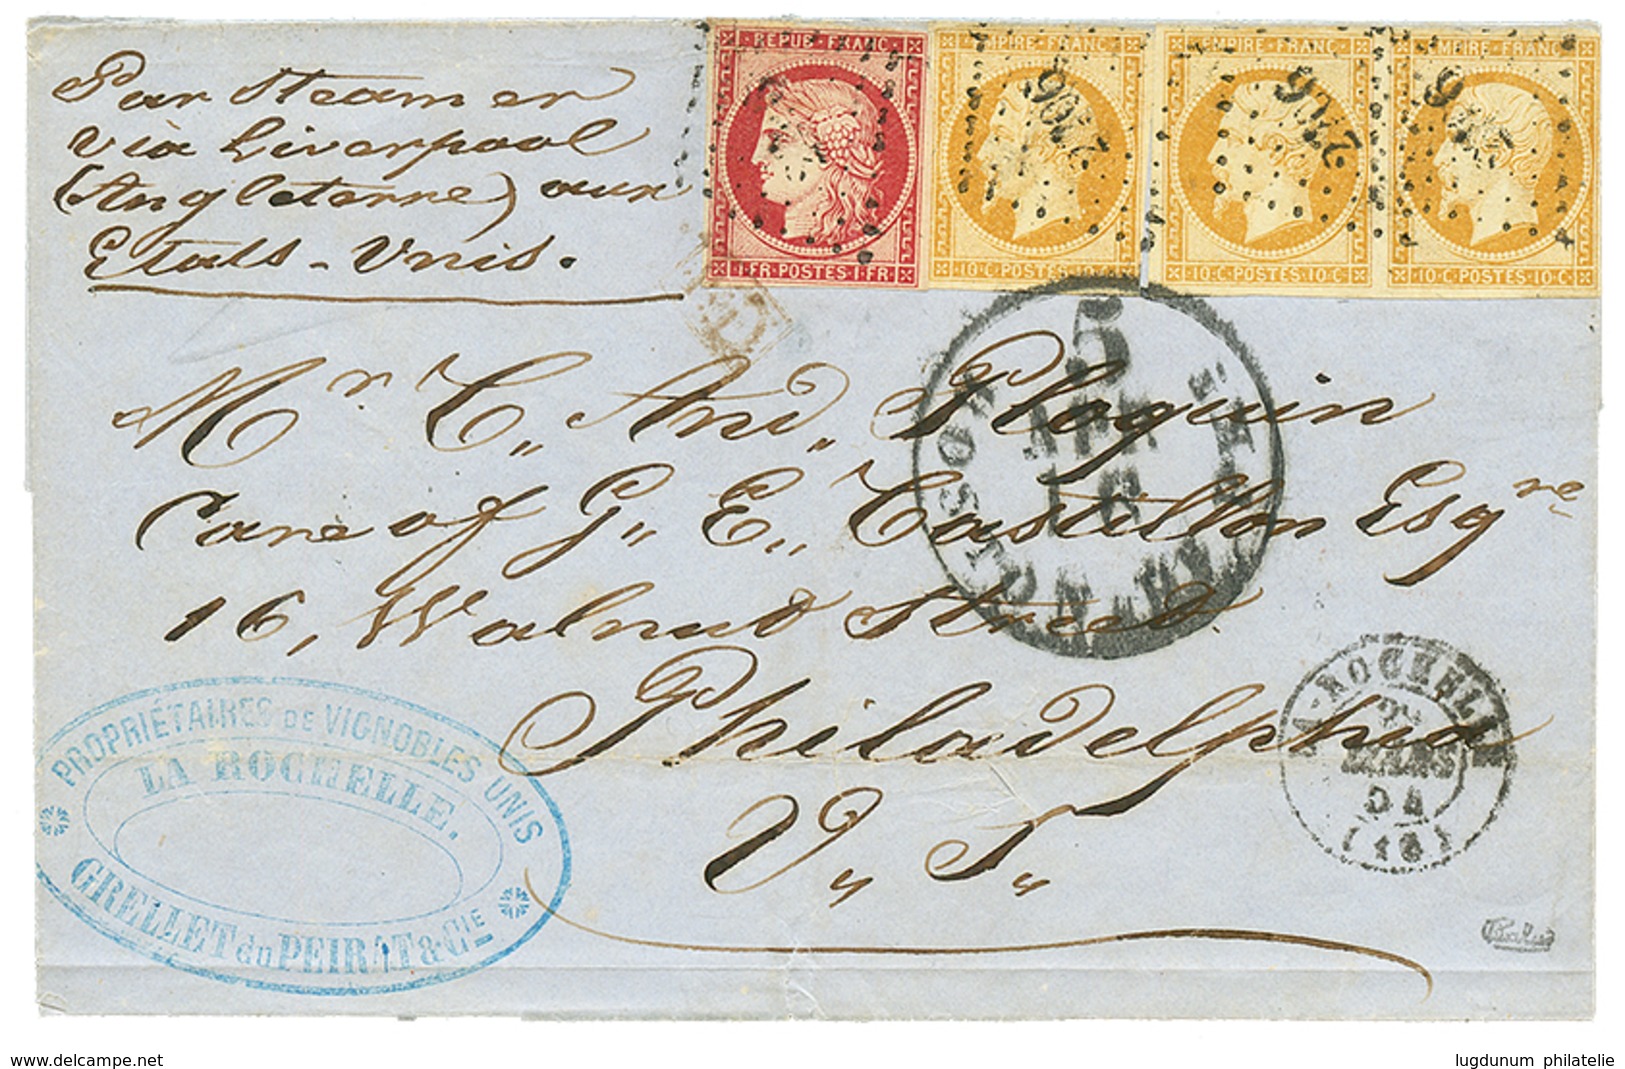 Par Steamer
via Liverpool
(Angleterre) aux
Etats-Unis.
REPUB · FRANC
1 · FR · POSTES · 1 · FR
EMPIRE · FRANC
10 · C · POSTES · 10 · C
EMPIRE · FRANC
10 · C · POSTES · 10 · C
EMPIRE · FRANC
10 · C · POSTES · 10 · C
2706
2706
PD
5
APR
16
BOSTON
Mr C,, And,, Ploquin
Care of G,, E,, Castillon Esqre
16, Walnut Street.
Philadelphia
U,, S,,
LA-ROCHELLE
MARS
54
(16)
PROPRIÉTAIRES DE VIGNOBLES UNIS
LA ROCHELLE.
GRELLET du PEIRAT & CIE
www.delcampe.net
lugdunum philatelie